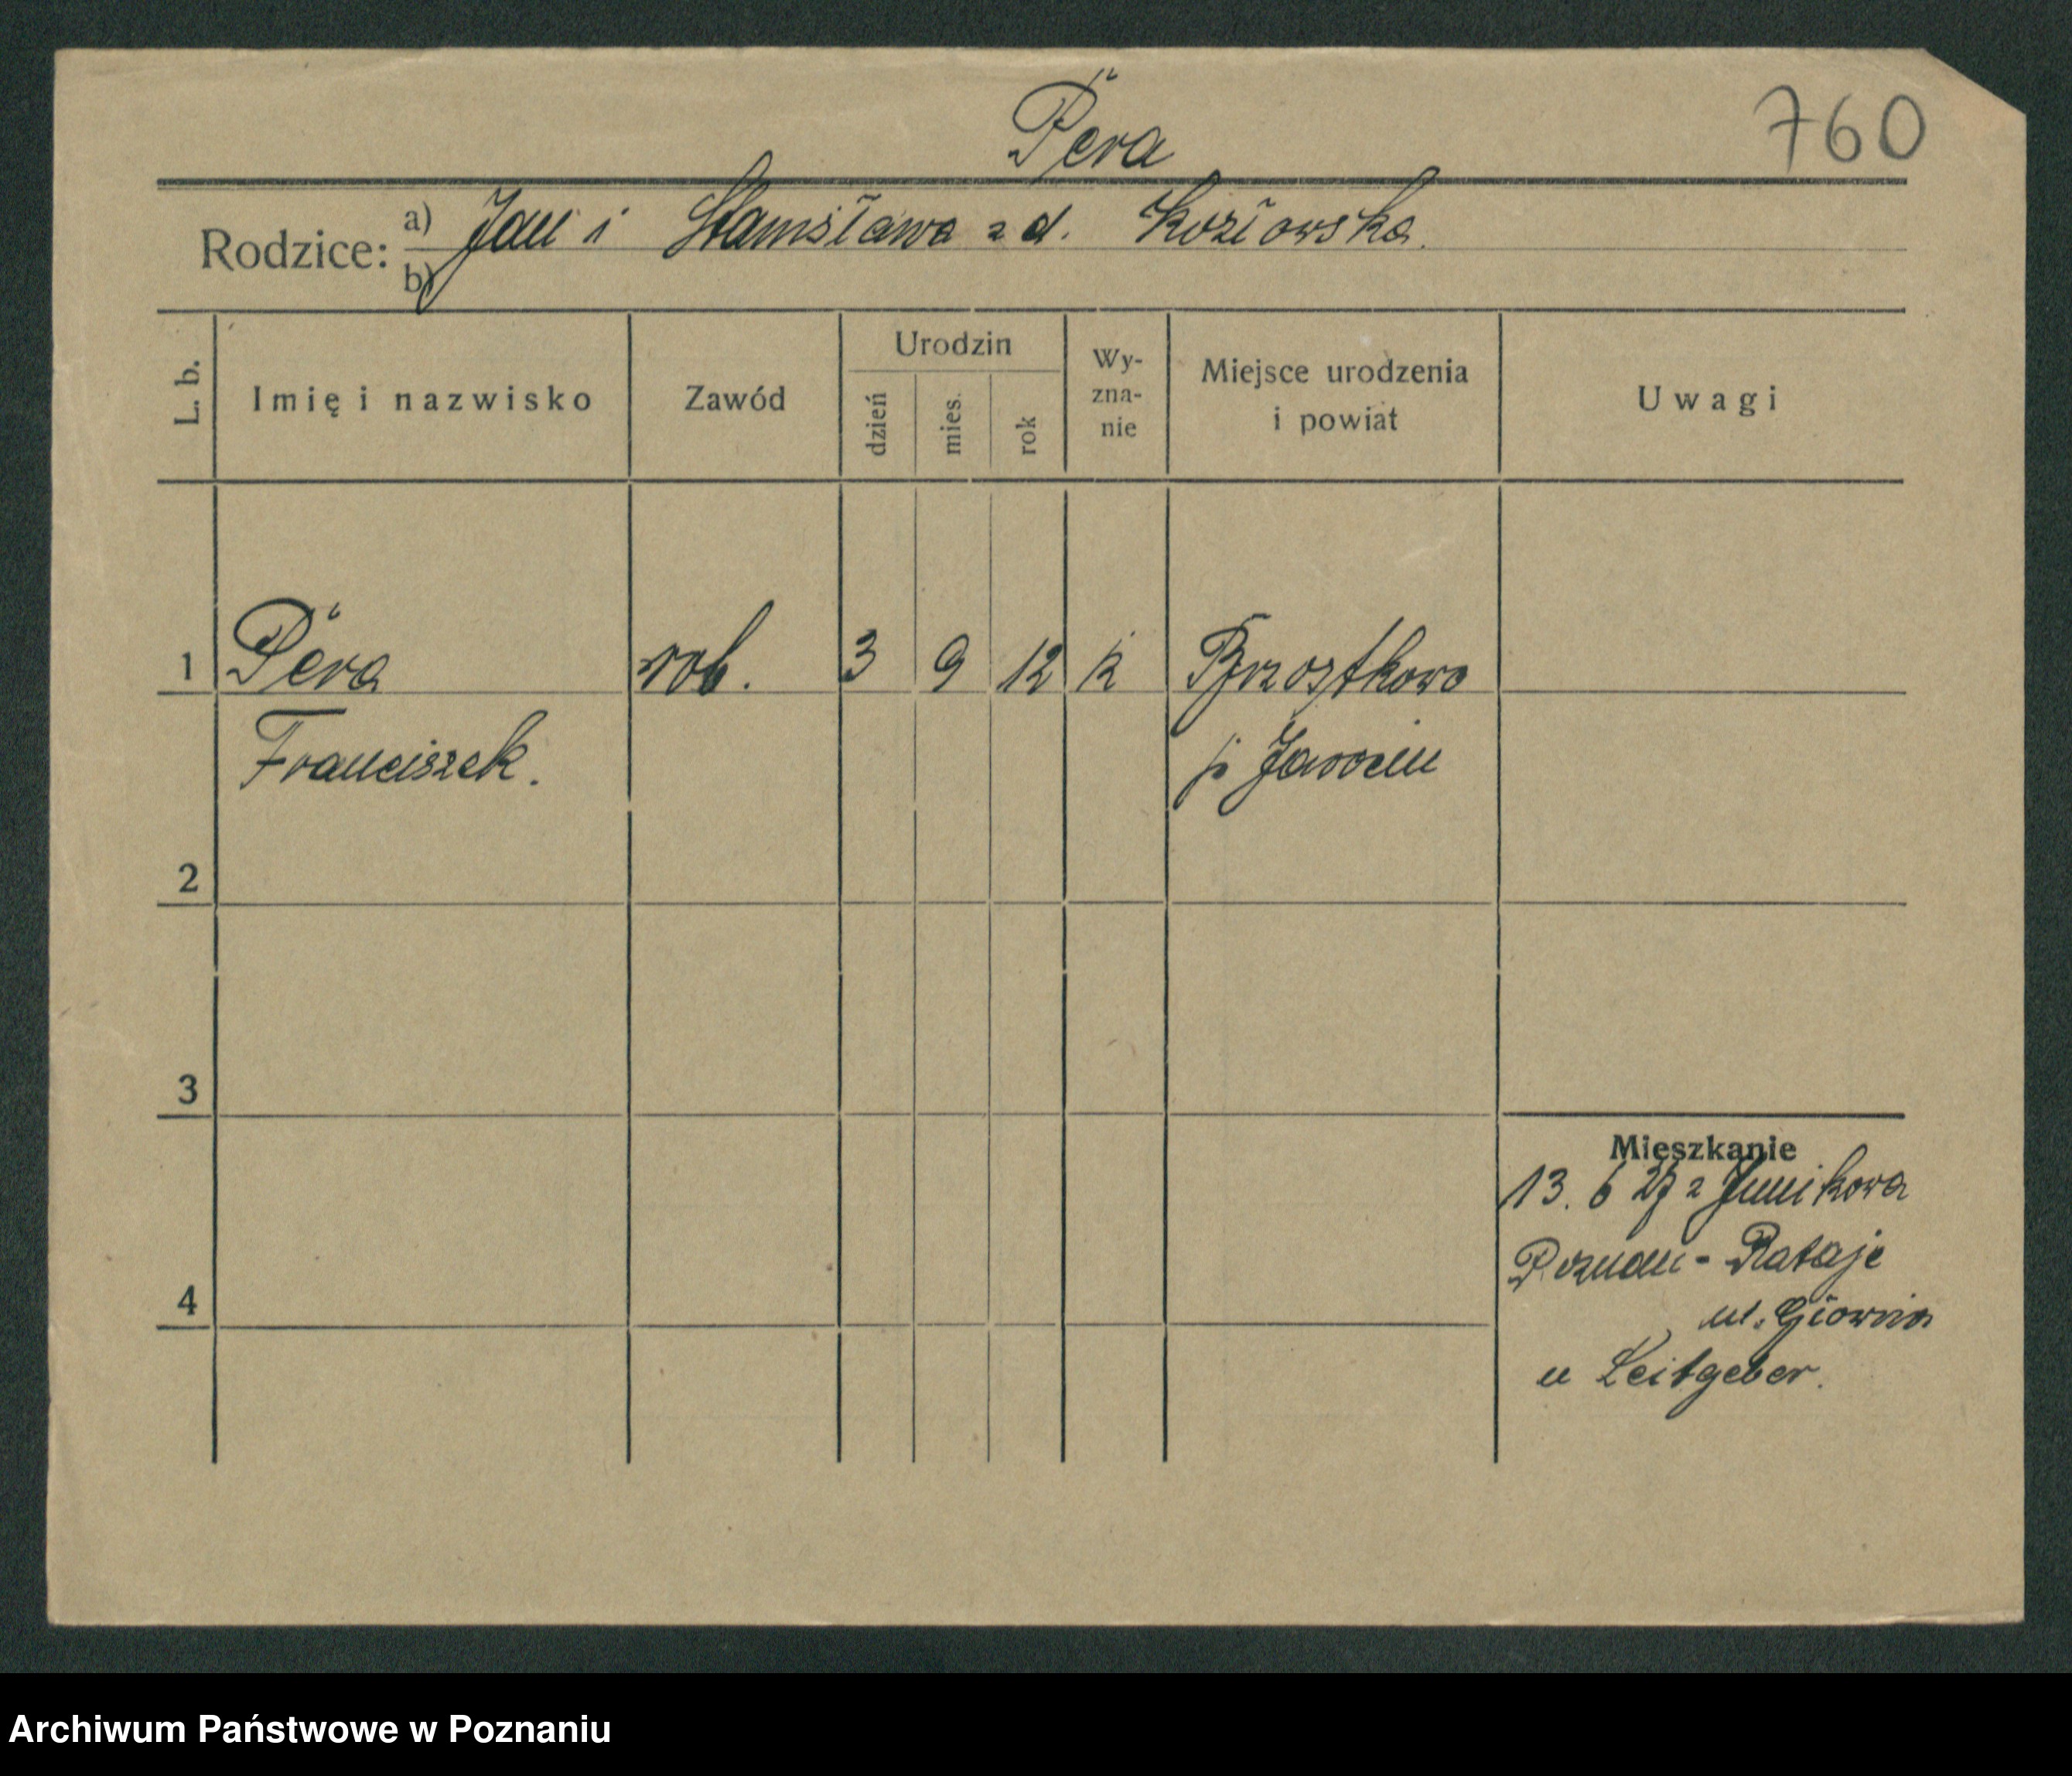 Pera
760
Rodzice: a) Jan i Stanisława z d. Kozłowska.
b)
L. b. Imię i nazwisko Zawód Urodzin dzień mies. rok Wy-zna-nie Miejsce urodzenia i powiat Uwagi
1 Pera rob. 3 9 12 k Brzostkowo
Franciszek. p. Jarocin
2
3
Mieszkanie
13. 6 27 z Junikowa
Poznań - Rataje
4
ul. Główna
u Leitgeber.
Archiwum Państwowe w Poznaniu